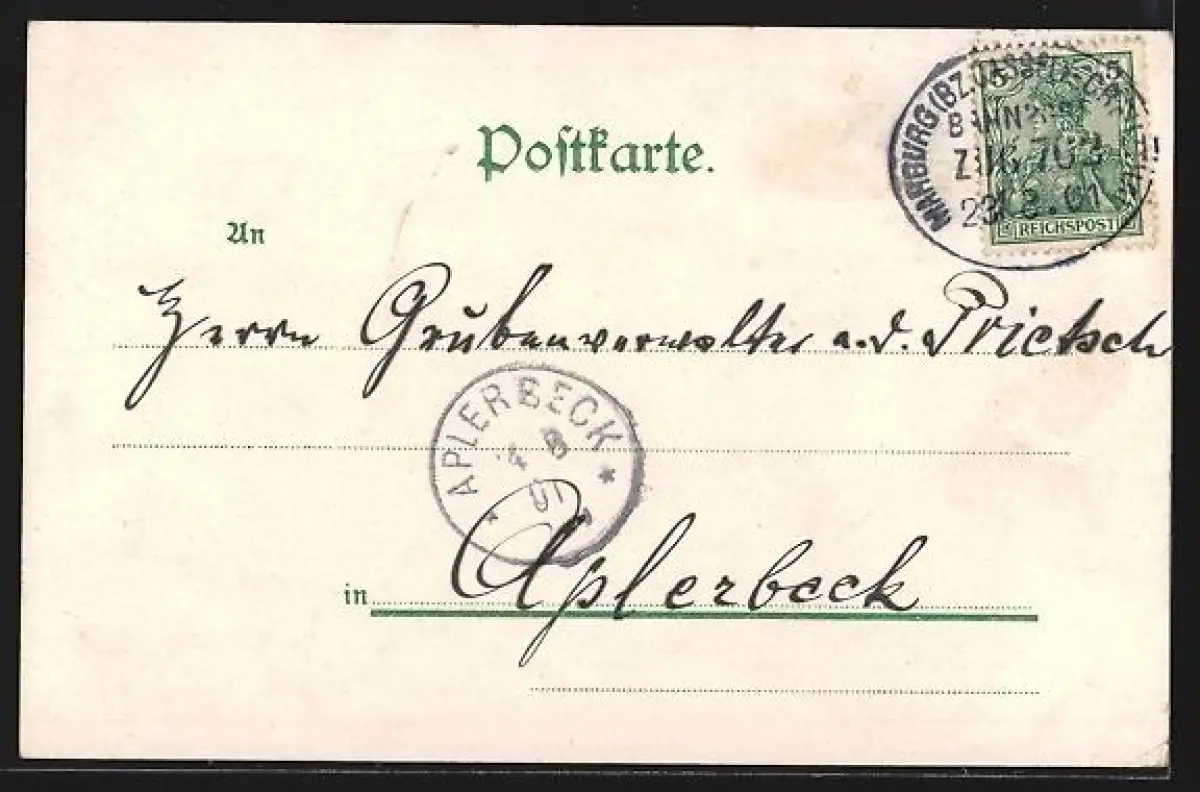 Postkarte.
MARBURG (BZ. CASSEL)-CR
BAHN
ZUG 703
23. 8. 01
5 5
REICHSPOST
An
Herrn Grubenverwalter a. d. Prietsch
APLERBECK
4 8
01
in Aplerbeck